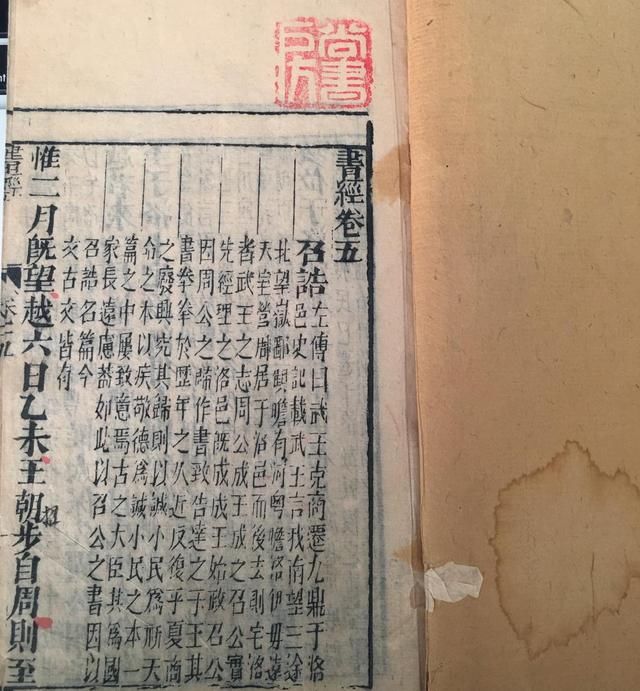 尚書
書經卷五
召誥 左傳曰武王克商遷九鼎于洛
邑史記載武王言我南望三途
北望嶽鄙顧瞻有河粵瞻洛伊毋遠
天室營周居于洛邑而後去則宅洛
者武王之志周公成王成之召公實
先經理之洛邑既成成王始政召公
因周公之歸作書致告達之于王其
書拳拳於歷年之久近反復乎夏商
之廢興究其歸則以諴小民為祈天
命之本以疾敬德為諴小民之本一
篇之中屢致意焉古之大臣其為國
家長遠慮蓋如此以召公之書因以
召誥名篇今
文古文皆有
惟二月既望越六日乙未王朝步自周則至
書經